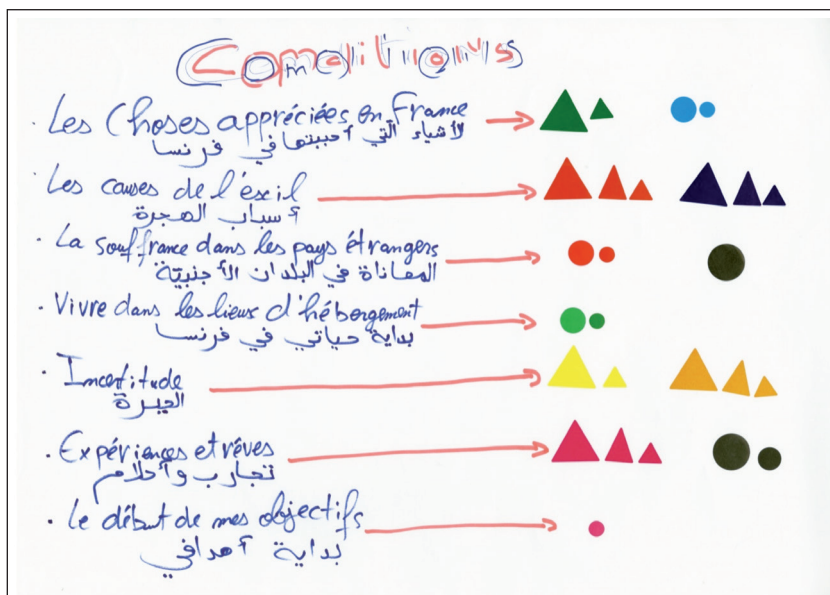 Comditions
. Les Choses appréciées en France
لأشياء التي أحببتها في فرنسا
. Les causes de l'éxil
أسباب الهجرة
. La souffrance dans les pays étrangers
المعاناة في البلدان الأجنبيّة
. Vivre dans les lieux d'hébergement
بداية حياتي في فرنسا
. Incertitude
الحيرة
. Expériences et rêves
تجارب وأحلام
. Le début de mes objectifs
بداية أهدافي